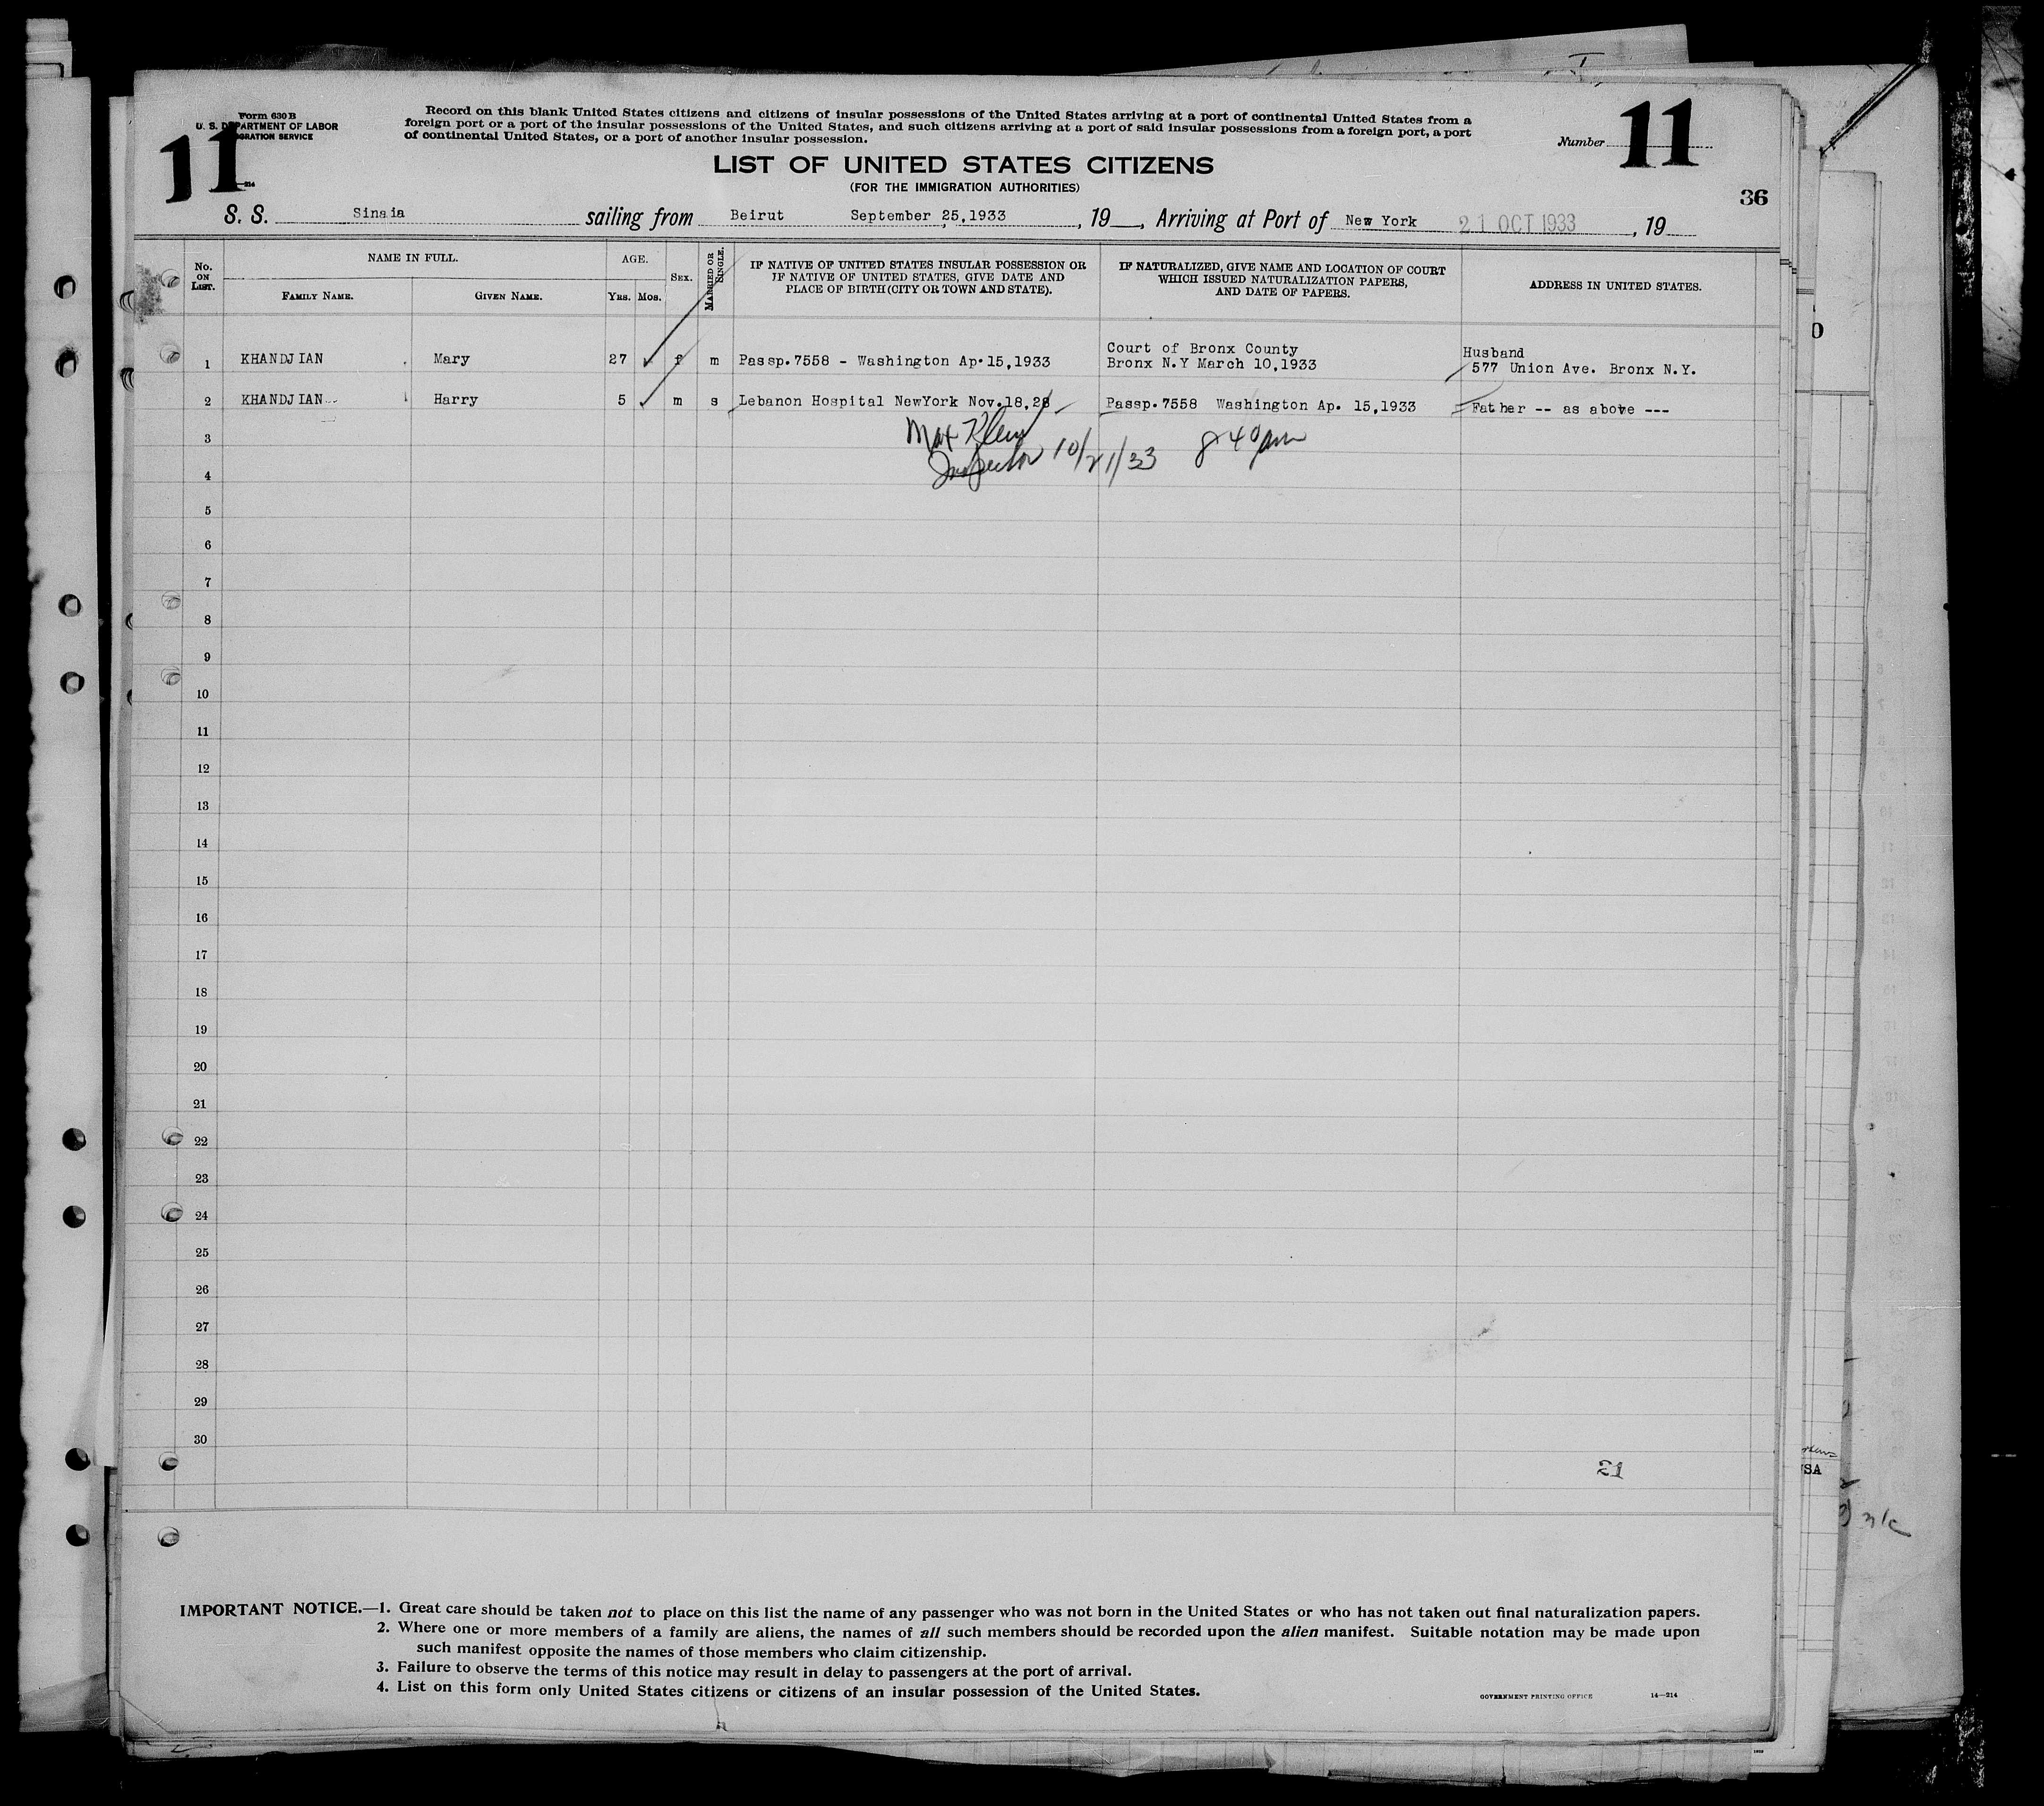 Form 630 B
U. S. DEPARTMENT OF LABOR
IMMIGRATION SERVICE
11
Record on this blank United States citizens and citizens of insular possessions of the United States arriving at a port of continental United States from a
foreign port or a port of the insular possessions of the United States, and such citizens arriving at a port of said insular possessions from a foreign port, a port
of continental United States, or a port of another insular possession.
Number 11
LIST OF UNITED STATES CITIZENS
(FOR THE IMMIGRATION AUTHORITIES)
36
S. S. Sinaia sailing from Beirut September 25,1933, 19 , Arriving at Port of New York 21 OCT 1933, 19
No. ON LIST.
NAME IN FULL.
FAMILY NAME.
GIVEN NAME.
AGE.
YRS. MOS.
SEX.
MARRIED OR SINGLE.
IF NATIVE OF UNITED STATES INSULAR POSSESSION OR
IF NATIVE OF UNITED STATES, GIVE DATE AND
PLACE OF BIRTH (CITY OR TOWN AND STATE).
IF NATURALIZED, GIVE NAME AND LOCATION OF COURT
WHICH ISSUED NATURALIZATION PAPERS,
AND DATE OF PAPERS.
ADDRESS IN UNITED STATES.
1 KHANDJIAN Mary 27 f m Passp.7558 - Washington Ap.15,1933 Court of Bronx County Husband
Bronx N.Y March 10,1933 577 Union Ave. Bronx N.Y.
2 KHANDJIAN Harry 5 m s Lebanon Hospital NewYork Nov.18,28 Passp.7558 Washington Ap. 15,1933 Father -- as above ---
Max Klein
Inspector 10/21/33 8 40 am
3
4
5
6
7
8
9
10
11
12
13
14
15
16
17
18
19
20
21
22
23
24
25
26
27
28
29
30
21
IMPORTANT NOTICE.—1. Great care should be taken not to place on this list the name of any passenger who was not born in the United States or who has not taken out final naturalization papers.
2. Where one or more members of a family are aliens, the names of all such members should be recorded upon the alien manifest. Suitable notation may be made upon
such manifest opposite the names of those members who claim citizenship.
3. Failure to observe the terms of this notice may result in delay to passengers at the port of arrival.
4. List on this form only United States citizens or citizens of an insular possession of the United States.
GOVERNMENT PRINTING OFFICE 14—214